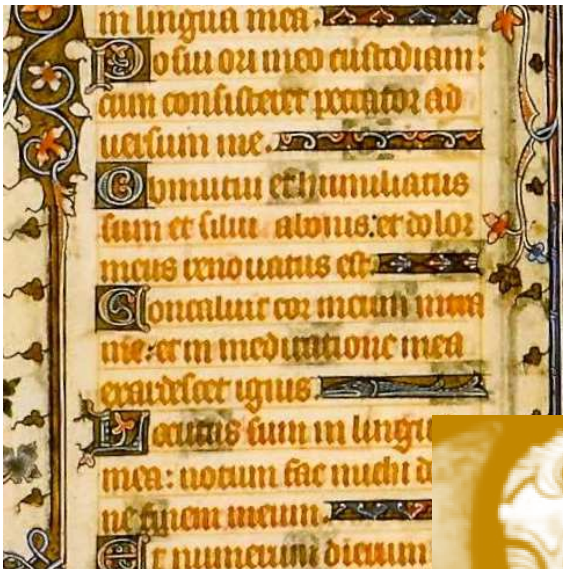 in lingua mea.
Posui ori meo custodiam:
cum consisteret peccator ad
uersum me.
Obmutui et humiliatus
sum et silui a bonis: et dolor
meus renouatus est
Concaluit cor meum intra
me: et in meditatione mea
exardescet ignis
Locutus sum in lingu
mea: notum fac michi d
ne finem meum.
Et numerum dierum